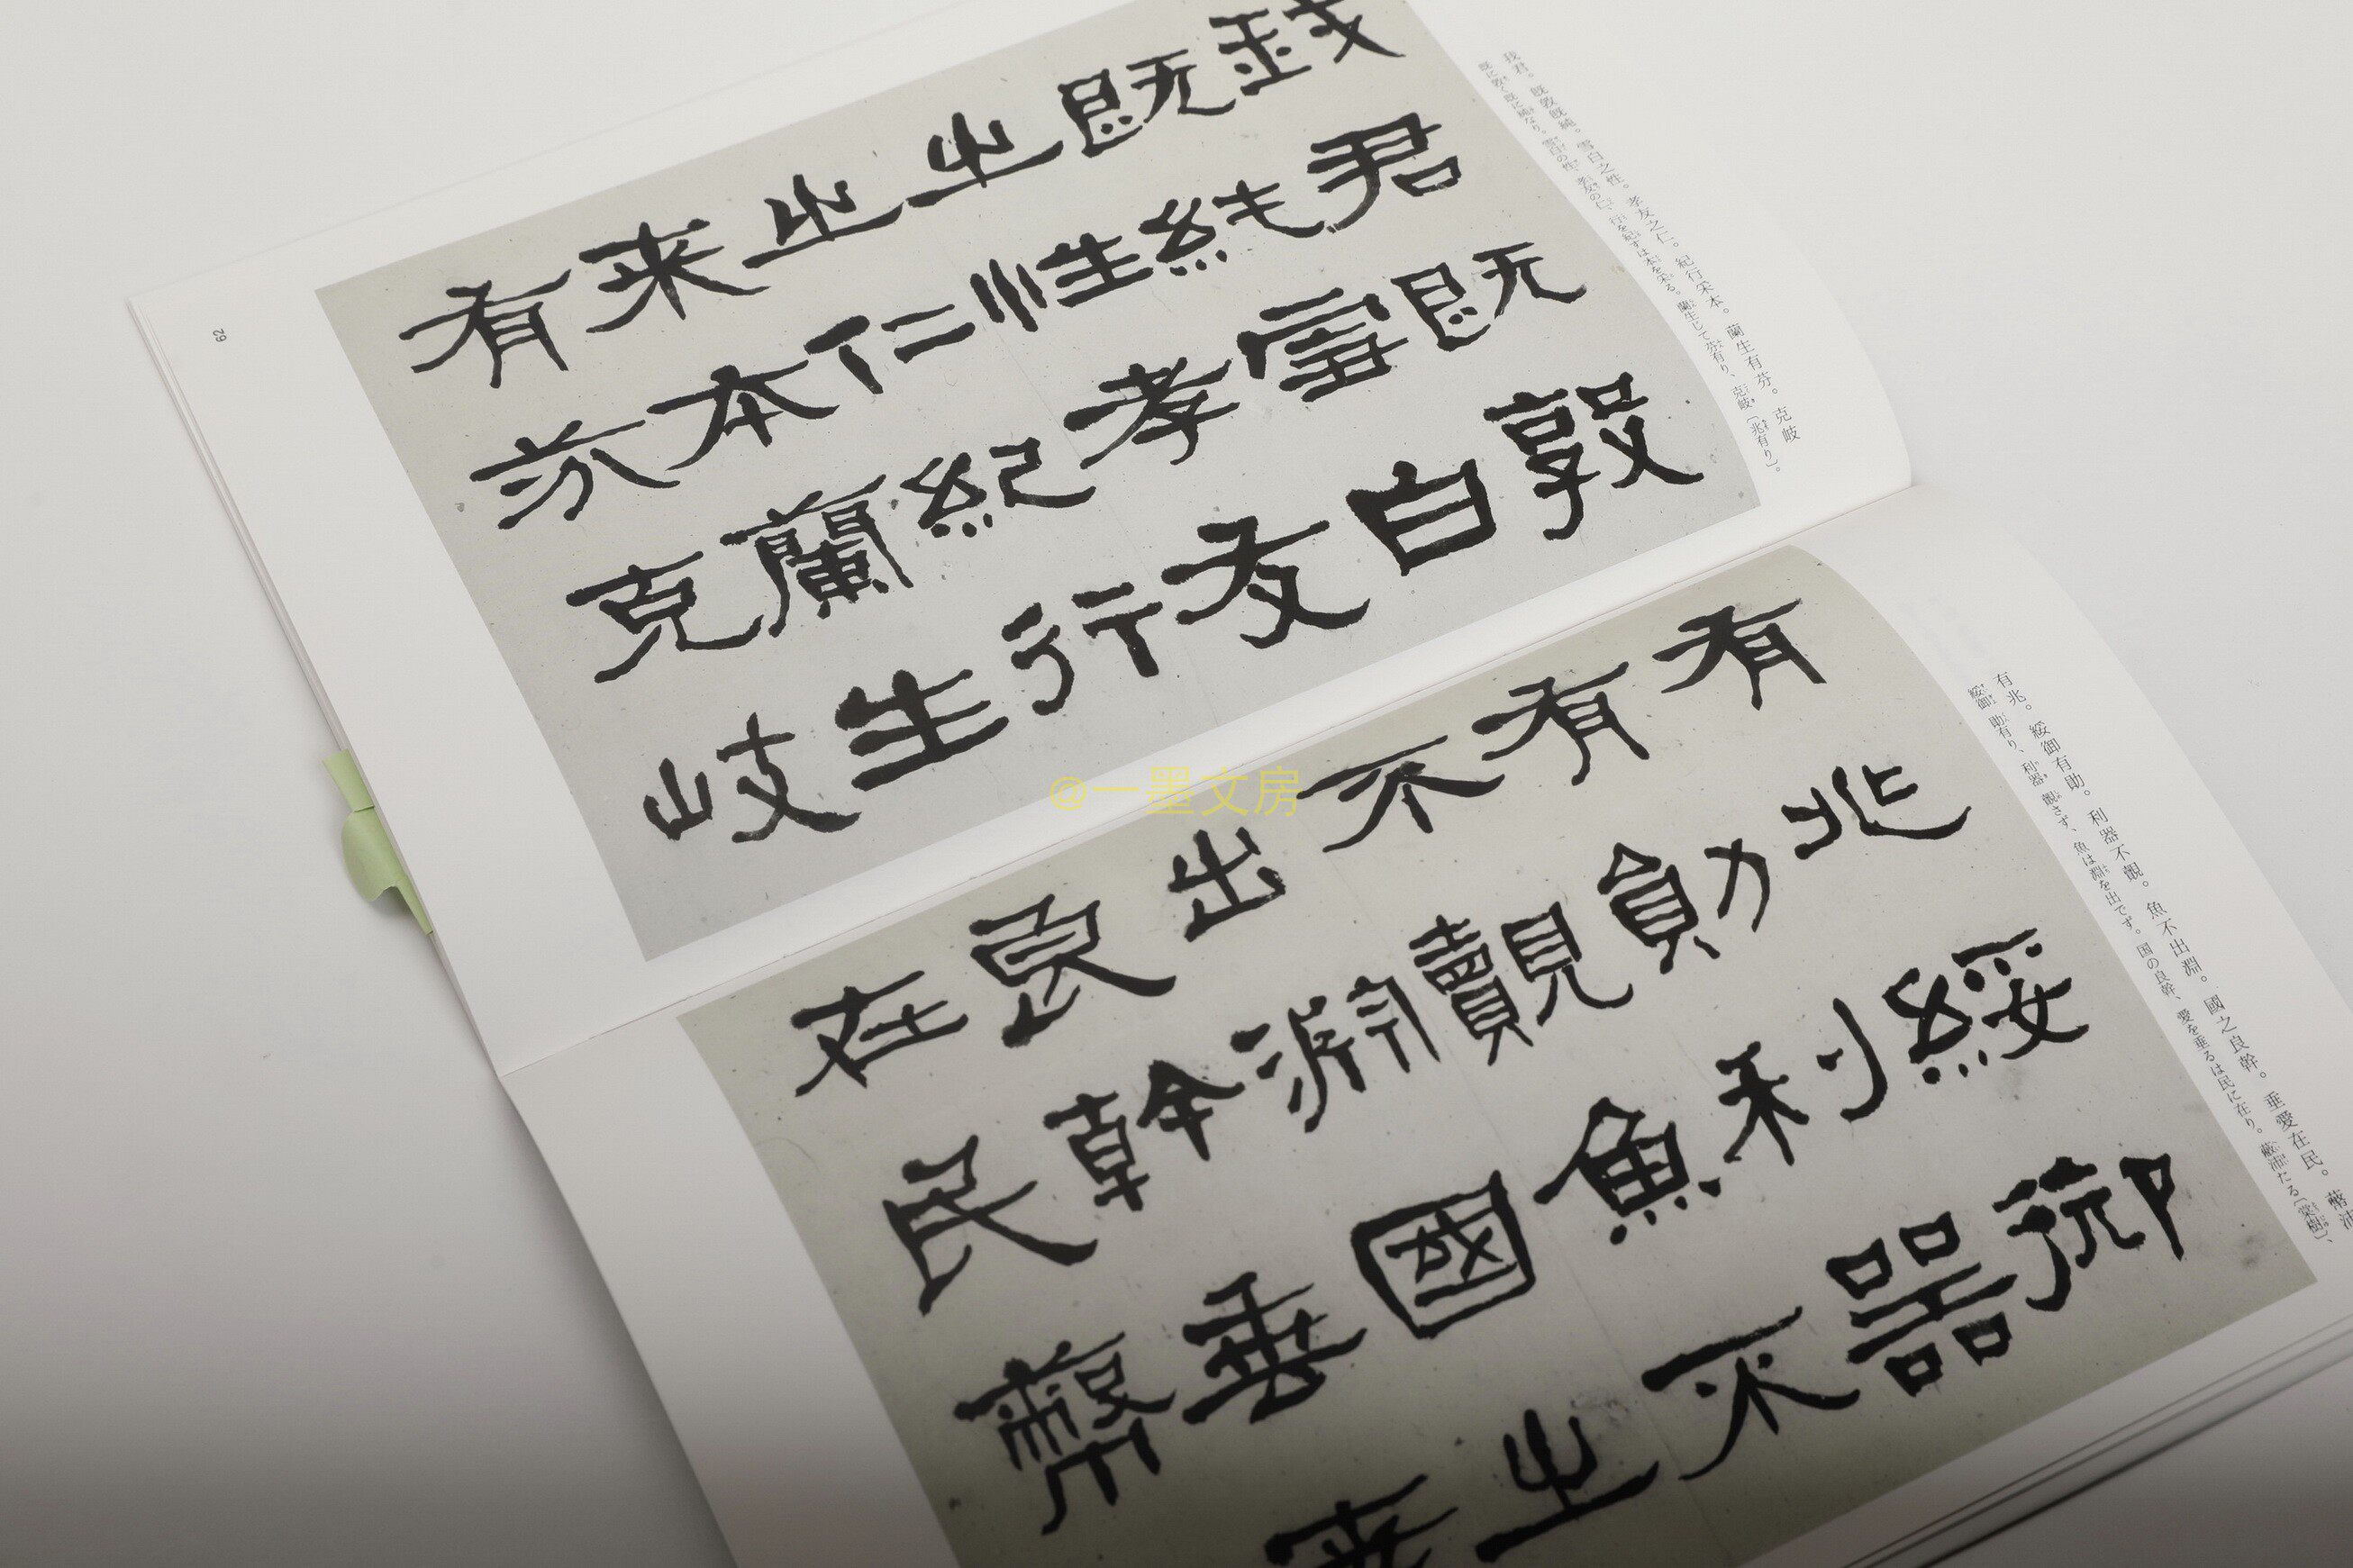 我君。既敦既純。雪白之性。孝友之仁。紀行来本。蘭生有芬。克岐
既に敦く既に純なり。雪白の性、孝友の仁、行を紀すは本を来る。蘭生じて芬有り、克岐〔兆有り〕。
我君既敦
既純雪白
之性孝友
之仁紀行
来本蘭生
有芬克岐
62
有兆。綏御有助。利器不覿。魚不出淵。國之良幹。垂愛在民。蔽沛
綏御 助有り、利器 覿さず、魚は淵を出でず。国の良幹、愛を垂るは民に在り。蔽沛たる〔棠樹〕、
有兆綏御
有勛利器
不覿魚不
出淵國之
良幹垂
在民蔽
@一墨文房